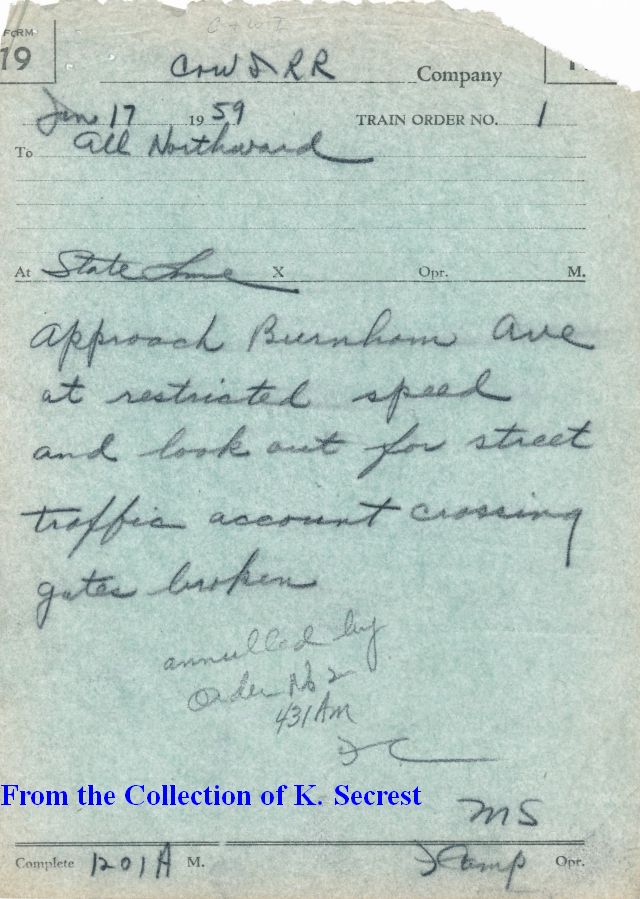 C & W I
FORM
19
C & W I RR Company
Jan 17 1959 TRAIN ORDER NO. 1
To All Northward
At State Line X Opr. M.
Approach Burnham Ave
at restricted speed
and look out for street
traffic account crossing
gates broken
annulled by
Order No 2
431 AM
From the Collection of K. Secrest
MS
Complete 1201 A M. Opr.